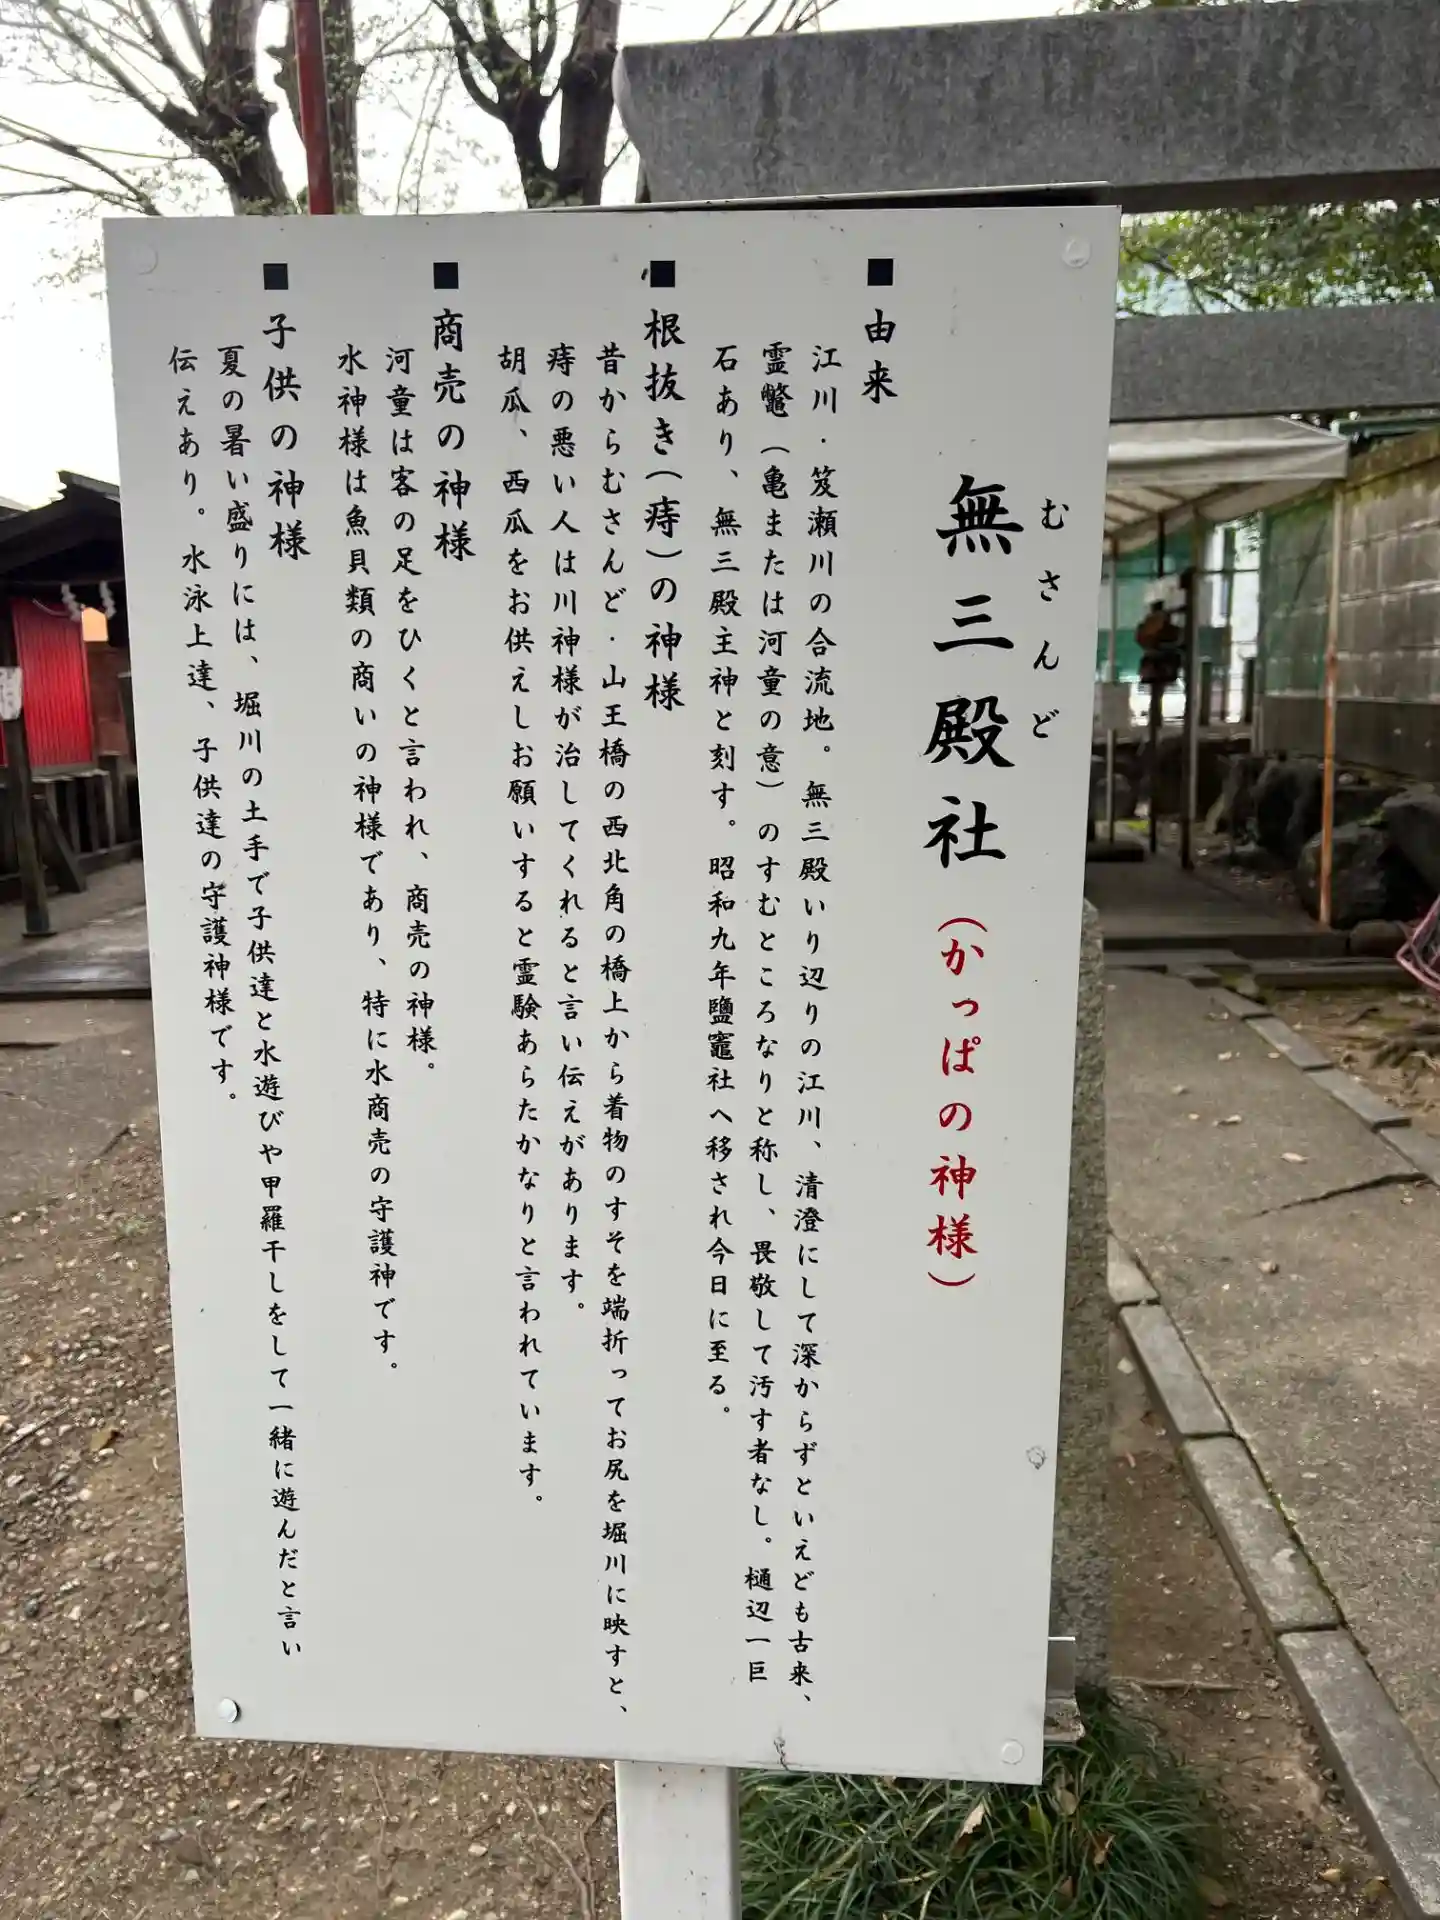 むさんど
無三殿社(かっぱの神様)
■由来
江川・笈瀬川の合流地。無三殿いり辺りの江川、清澄にして深からずといえども古来、
霊鼈(亀または河童の意)のすむところなりと称し、畏敬して汚す者なし。樋辺一巨
石あり、無三殿主神と刻す。昭和九年鹽竈社へ移され今日に至る。
■根抜き(痔)の神様
昔からむさんど・山王橋の西北角の橋上から着物のすそを端折ってお尻を堀川に映すと、
痔の悪い人は川神様が治してくれると言い伝えがあります。
胡瓜、西瓜をお供えしお願いすると霊験あらたかなりと言われています。
■商売の神様
河童は客の足をひくと言われ、商売の神様。
水神様は魚貝類の商いの神様であり、特に水商売の守護神です。
■子供の神様
夏の暑い盛りには、堀川の土手で子供達と水遊びや甲羅干しをして一緒に遊んだと言い
伝えあり。水泳上達、子供達の守護神様です。